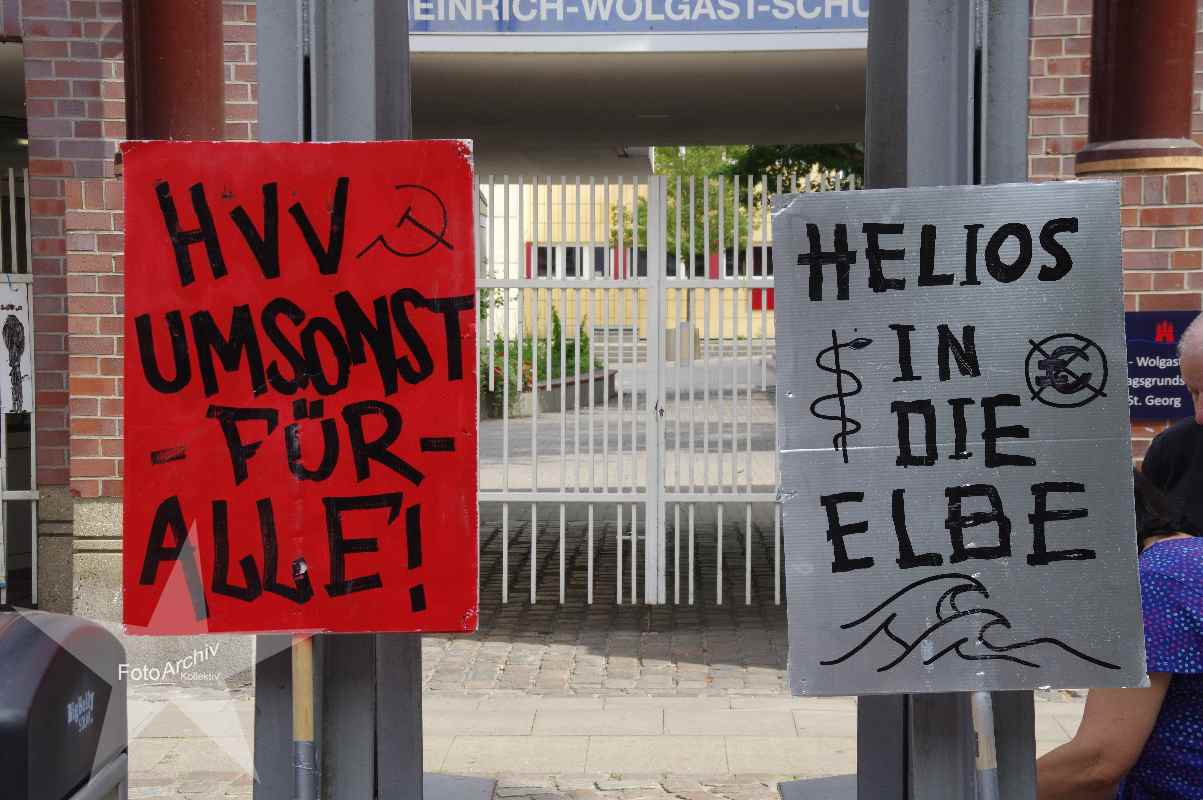 EINRICH-WOLGAST-SCHU
HVV
UMSONST
- FÜR -
ALLE!
HELIOS
IN
DIE
ELBE
- Wolgast
agsgrunds
St. Georg
FotoArchiv
Kollektiv
BigBelly